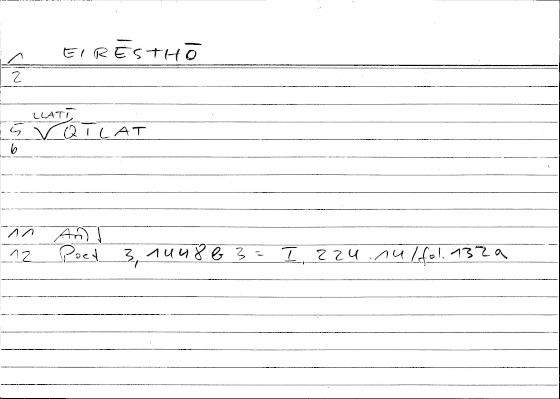 1 EIRĒSTHŌ
2
LLATĪ
5 √QĪLAT
6
11 An ↓
12 Poet 3,1448b3 = I, 224.14/fol.132a